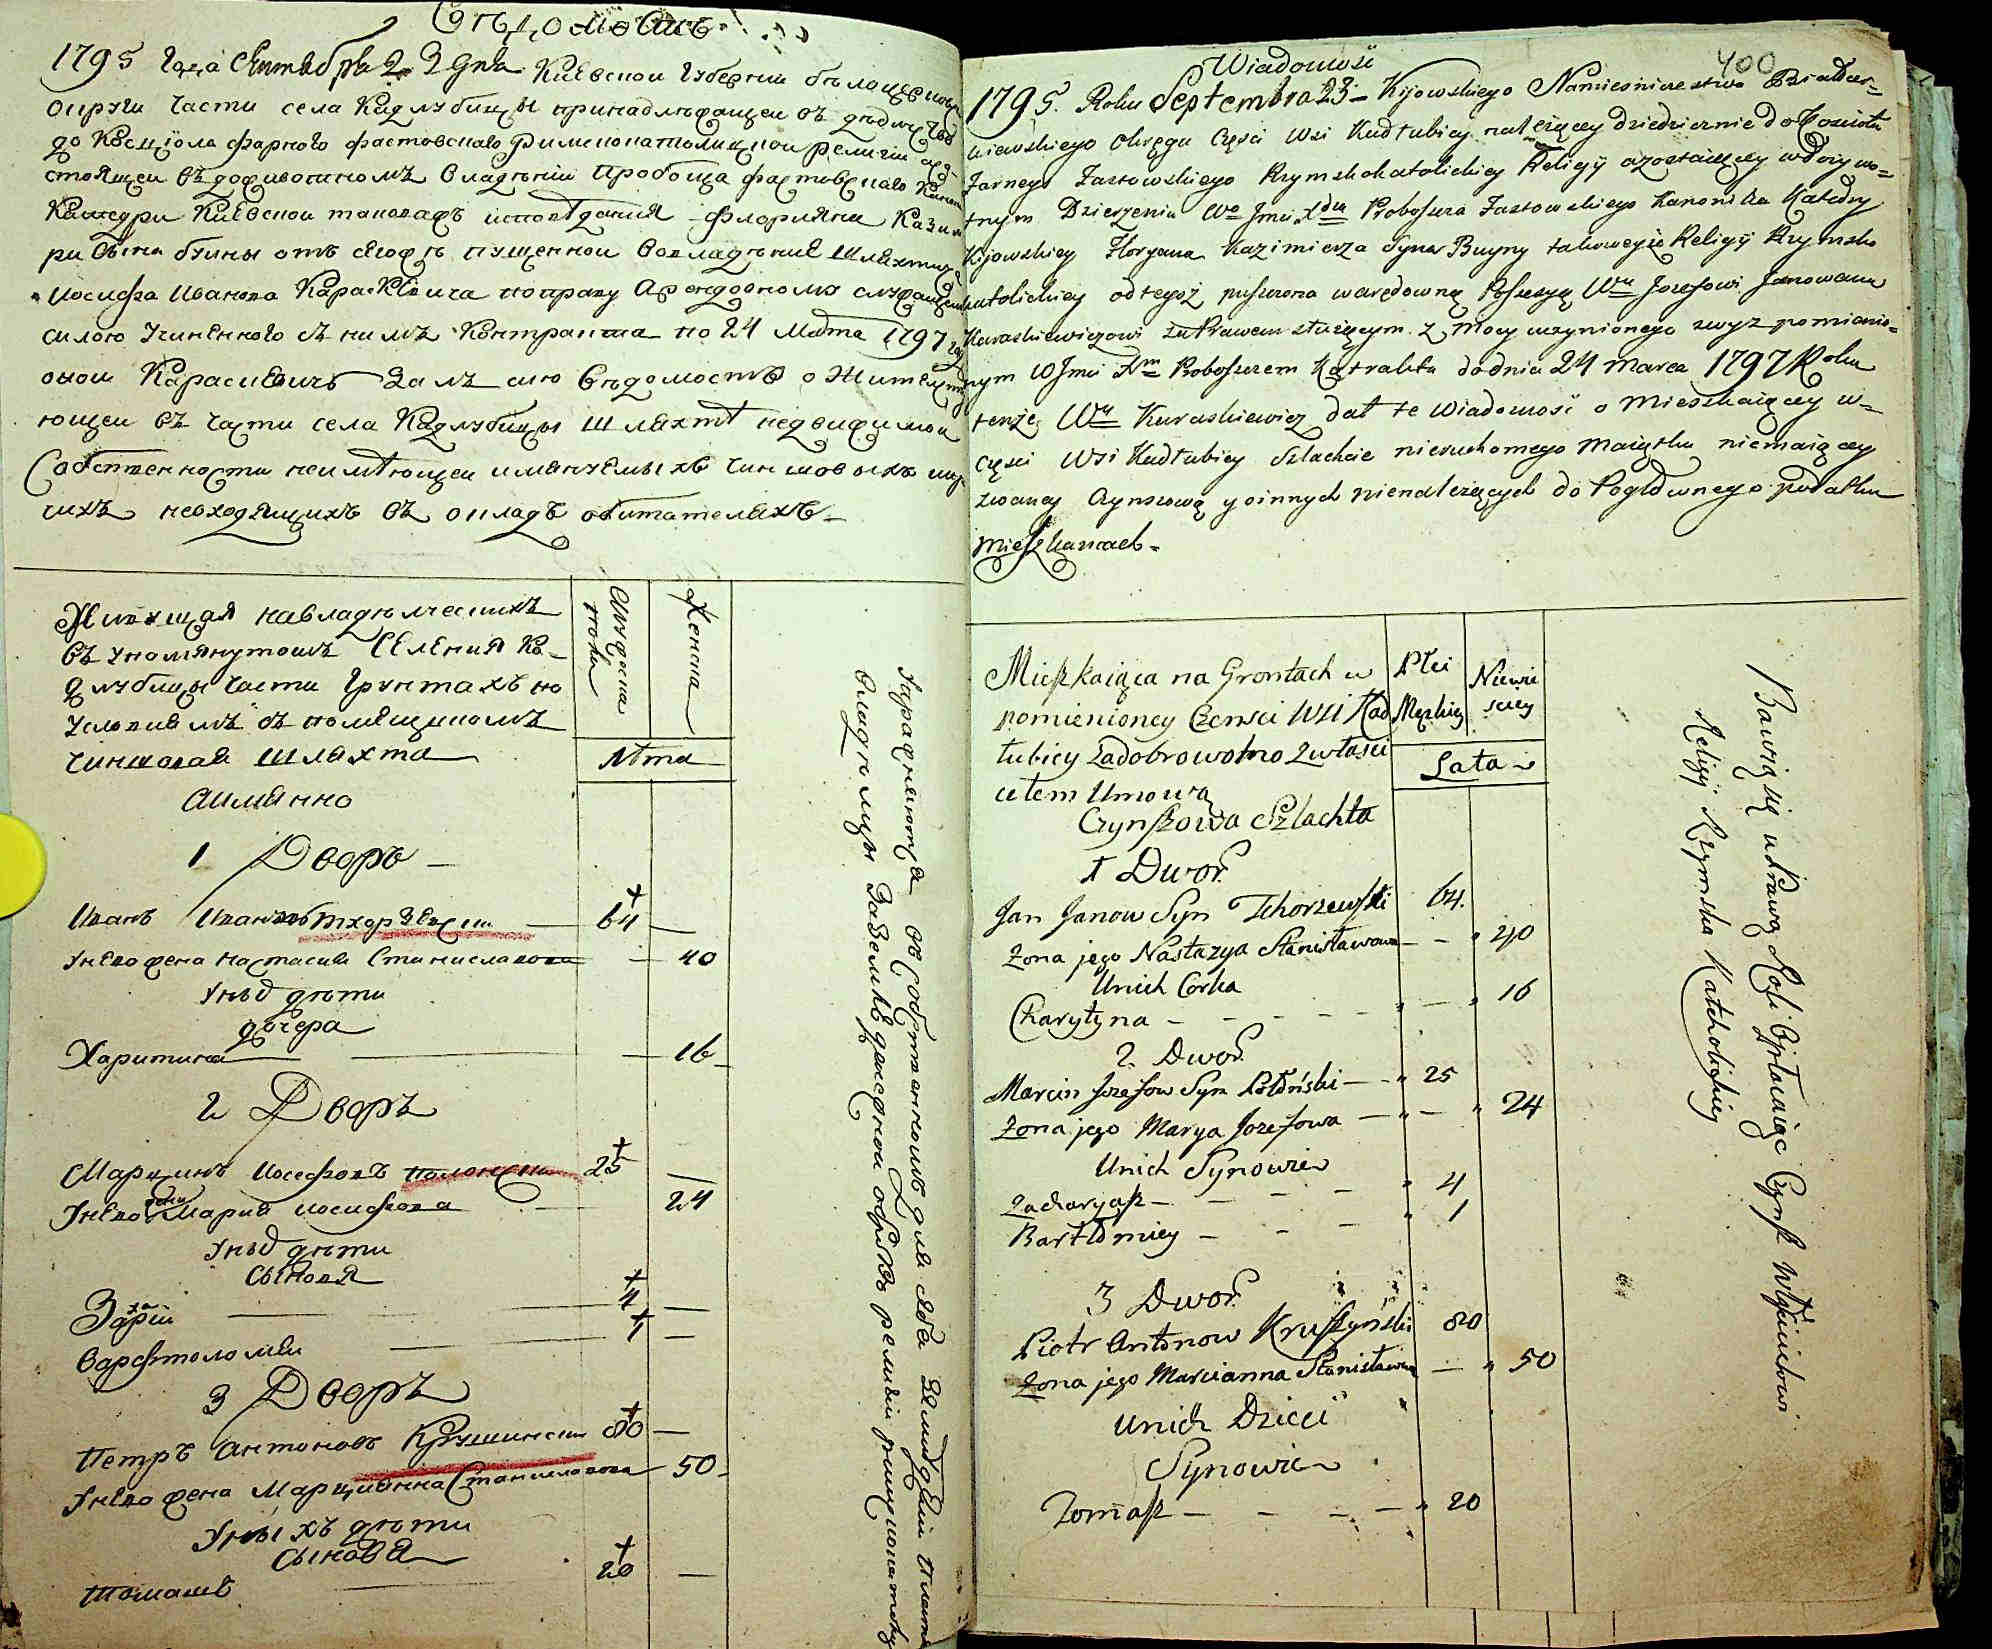 1795 года Сентября 23 дня Киевской Губернии Белоцерковс
округи части села Кадлубицы принадлежащей въ
до Костіола фарного фастовского Римскокатолицкой религіи
стоящей въ доживотномъ владеніи Пробоща фастовского
Катедри Киевской таковажъ исповеданія Флоріяна Казим
ри сына Буйны отъ егожъ пущенной во владение шляхтича
Иосифа Иванова Караскевича по праву Арендовному служащему
силою учиненного съ нимъ Контракта по 24 Марта 1797
оной Караскевичъ далъ сию ведомость о жител
ющей въ части села Кадлубицы шляхте недвижимой
Собственности неимеющей имянуемыхъ чиншовыхъ
чихъ невходящихъ въ окладъ обитателяхъ
Живущая на владельческихъ
въ упомянутомъ Селения Ка-
длубицы части грунтахъ по
условиемъ съ помещикомъ
чиншовая шляхта
Аимянно
Мужеска
полу
Женска
Лета
1 Дворъ
Иванъ Ивановъ Тхоржевски 64 —
У него жена Настасия Станиславова — 40
У нихъ дети
дочера
Харитина — 16
2 Дворъ
Марцинъ Иосефовъ Полонски 25 —
У него жена Мария Иосифова 24
У нихъ дети
Сыновя
Захарій 4 —
Варфтоломей 1 —
3 Дворъ
Петръ Антоновъ Крушински 80 —
У него жена Марцианна Станиславова 50
У нихъ дети
Сыновя
Томашъ 20 —
400
Wiadomość
1795. Roku Septembra 23 – Kijowskiego Namiesnicestwa Białocer=
kiewskiego okręgu Części Wsi Kadłubicy należącey dziedzicznie do Kościoła
Farnego Fastowskiego Rzymskokatolickiey Religij azostaiącey w dożywo=
tnym Dzierżeniu Wo Jmci Xdza Proboszcza Fastowskiego Kanonika Katedry
Kijowskiey Floryana Kazimierza Syna Buyny takoweyże Religij Rzymsko
katolickiey od tegoż puszczona w arędowną Possesyą Wmu Jozefowi Janowemu
Karaskiewiczowi za Prawem służącym z Mocy uczynionego zwyż pomienio=
nym WJmci Xm Proboszczem Kątraktu do dnia 24 marca 1797 Roku
tenże Wy Karaskiewicz dał te Wiadomość o Mieszkaiącey w=
części Wsi Kadłubicy Szlachcie nieruchomego Maiątku niemaiącey
zwaney Czynszową y oinnych nienależących do Pogłownego podatku
Mieszkancach.
Mieszkaiąca na Grontach w
pomienioney Czensci Wsi Kad
łubicy Zadobrowolno z właści
cielem Umową
Czynszowa Szlachta
Płci
Męzkiey
Niewie
sciey
Lata
1 Dwor
Jan Janow Syn Tchorzewski 64.
Zona jego Nastazya Stanisławowa — 40
Unich Corka
Charytyna — 16
2. Dwor
Marcin Jozefow Syn Połoński — 25
Zona jego Marya Jozefowa — 24
Unich Synowie
Zacharyasz — 4
Bartłomiey — 1
3 Dwor
Piotr Antonow Kruszyński 80
Zona jego Marcianna Stanisławowa — 50
Unich Dzieci
Synowie
Tomasz — 20
Bawią się uprawą Roli Opłacaiąc Czynsz Właścicielowi
Religij Rzymsko Katholickiey